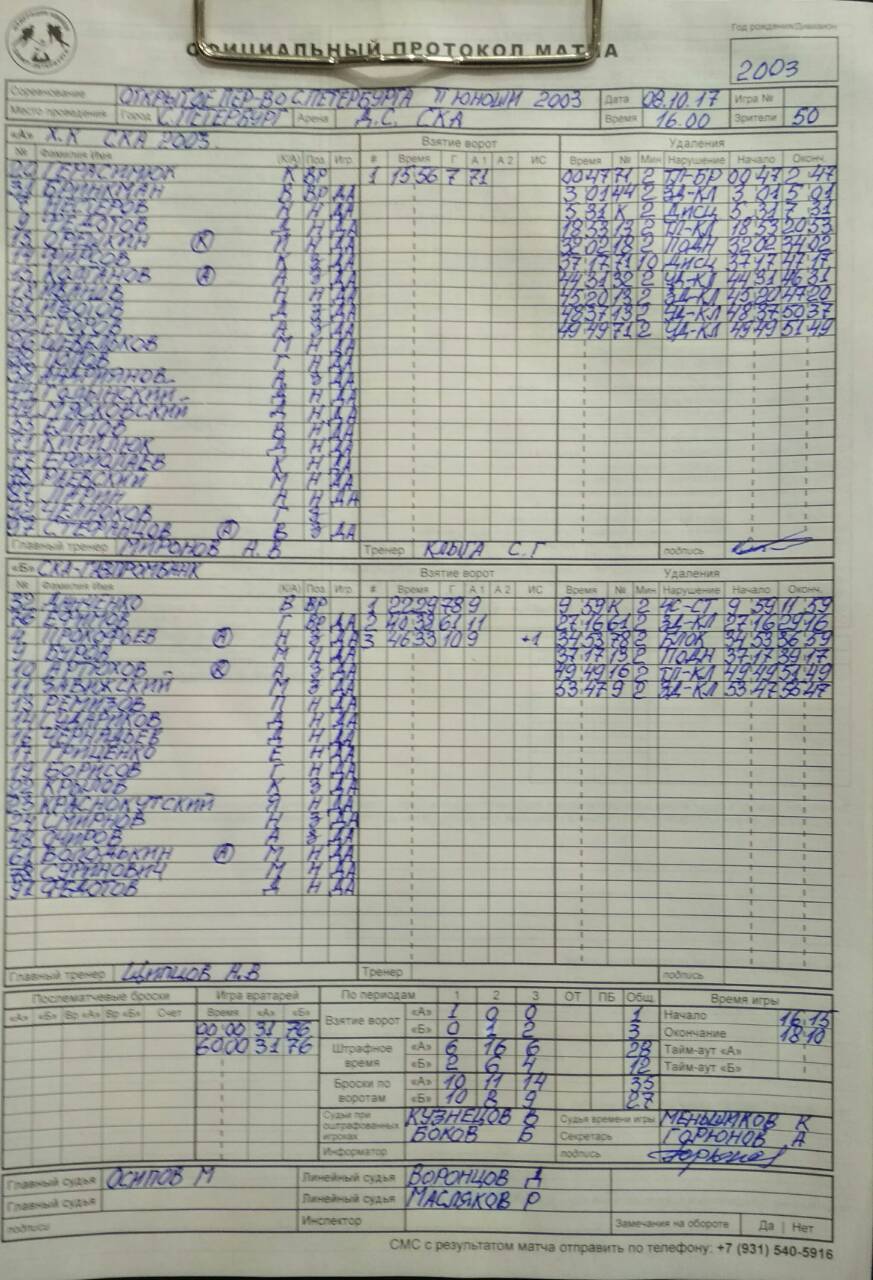 Год рождения/Дивизион
ОФИЦИАЛЬНЫЙ ПРОТОКОЛ МАТЧА
2003
Соревнование ОТКРЫТОЕ ПЕР-ВО С.ПЕТЕРБУРГА ЮНОШИ 2003 Дата 08.10.17 Игра №
Место проведения Город С.ПЕТЕРБУРГ Арена Д.С. СКА Время 16.00 Зрители 50
«А» Х.К СКА 2003 Взятие ворот Удаления
№ Фамилия Имя (К/А) Поз. Игр. # Время Г А 1 А 2 ИС Время № Мин Нарушение Начало Оконч.
ГЕРАСИМЮК К ВР 1 15 56 7 71 00 47 71 2 ТЛ-БР 00 47 2 47
31 БРИНКМАН В ВР ДА 3 01 44 2 ЗД-КЛ 3 01 5 01
Н ДА 5 31 К 2 ДИСЦ 5 31 7 31
ФЕДОТОВ Д Н ДА 18 53 13 2 ТЛ-КЛ 18 53 20 53
13 (К) П Н ДА 32 02 18 2 ПОДН 32 02 34 02
К З ДА 37 17 71 10 ДИСЦ 37 17 47 17
КОЛГАНОВ (А) А З ДА 44 31 32 2 УД-КЛ 44 31 46 31
ИВАНОВ Н ДА 45 20 13 2 ЗД-КЛ 45 20 47 20
З ДА 48 37 13 2 УД-КЛ 48 37 50 37
ЕГОРОВ А З ДА 49 49 71 2 УД-КЛ 49 49 51 49
М Н ДА
ПОПОВ Г Н ДА
З ДА
ГОЛЫНСКИЙ Д Н ДА
МОСКОВСКИЙ Д Н ДА
ЕЛАГОВ В Н ДА
71 КИРИЛЮК Д Н ДА
ЕРМОЛАЕВ К Н ДА
РАЕВСКИЙ М Н ДА
ЛЕРИН Н ДА
ЧЕЛНОКОВ Г З
97 (А) В З ДА
Главный тренер МИРОНОВ А.В Тренер КЛЫГА С.Г подпись
«Б» СКА-ГАЗПРОМБАНК Взятие ворот Удаления
№ Фамилия Имя (К/А) Поз. Игр. # Время Г А 1 А 2 ИС Время № Мин Нарушение Начало Оконч.
32 ДЯЧЕНКО В ВР 1 22 29 78 9 9 59 К 2 ЧС-СТ 9 59 11 59
76 ЕФИМОВ Г ВР ДА 2 40 38 61 11 27 16 61 2 ЗД-КЛ 27 16 29 16
4 ПРОКОФЬЕВ (А) Н З ДА 3 46 33 10 9 +1 34 53 78 2 БЛОК 34 53 36 53
9 БУРОВ М Н ДА 37 17 13 2 ПОДН 37 17 39 17
10 АРТЮХОВ (К) А З ДА 49 49 16 2 ТЛ-КЛ 49 49 51 49
11 ЗАВИЖСКИЙ М З ДА 53 47 9 2 ЗД-КЛ 53 47 55 47
13 РЕМИЗОВ П Н ДА
14 ГУДАРИКОВ Д Н ДА
16 ЧЕРНАДЬЕВ Д Н ДА
17 ГРИЦЕНКО Е Н ДА
19 БОРИСОВ Г Н ДА
22 КРЫЛОВ К З ДА
23 КРАСНОКУТСКИЙ Я Н ДА
24 СМИРНОВ Н З ДА
ОЧИРОВ А З ДА
61 ВОЛОДЬКИН (А) М Н ДА
78 СУРИНОВИЧ М Н ДА
91 ФЕДОТОВ Д Н ДА
Главный тренер ЩИПЦОВ А.В Тренер подпись
Послематчевые броски Игра вратарей По периодам 1 2 3 ОТ ПБ Общ. Время игры
«А» «Б» Вр «А» Вр «Б» Счет Время «А» «Б» Взятие ворот «А» 1 0 0 1 Начало 16.15
00 00 31 76 «Б» 0 1 2 3 Окончание 18.10
60 00 31 76 Штрафное время «А» 6 16 6 28 Тайм-аут «А»
«Б» 2 6 4 12 Тайм-аут «Б»
Броски по воротам «А» 10 11 14 35
«Б» 10 8 9 27
Судьи при оштрафованных игроках КУЗНЕЦОВ В Судья времени игры МЕНЬШИКОВ К
БОКОВ Б Секретарь ГОРЮНОВ А
Информатор подпись
Главный судья ОСИПОВ М Линейный судья ВОРОНЦОВ Д
Главный судья Линейный судья МАСЛЯКОВ Р
подписи Инспектор Замечания на обороте Да | Нет
СМС с результатом матча отправить по телефону: +7 (931) 540-5916